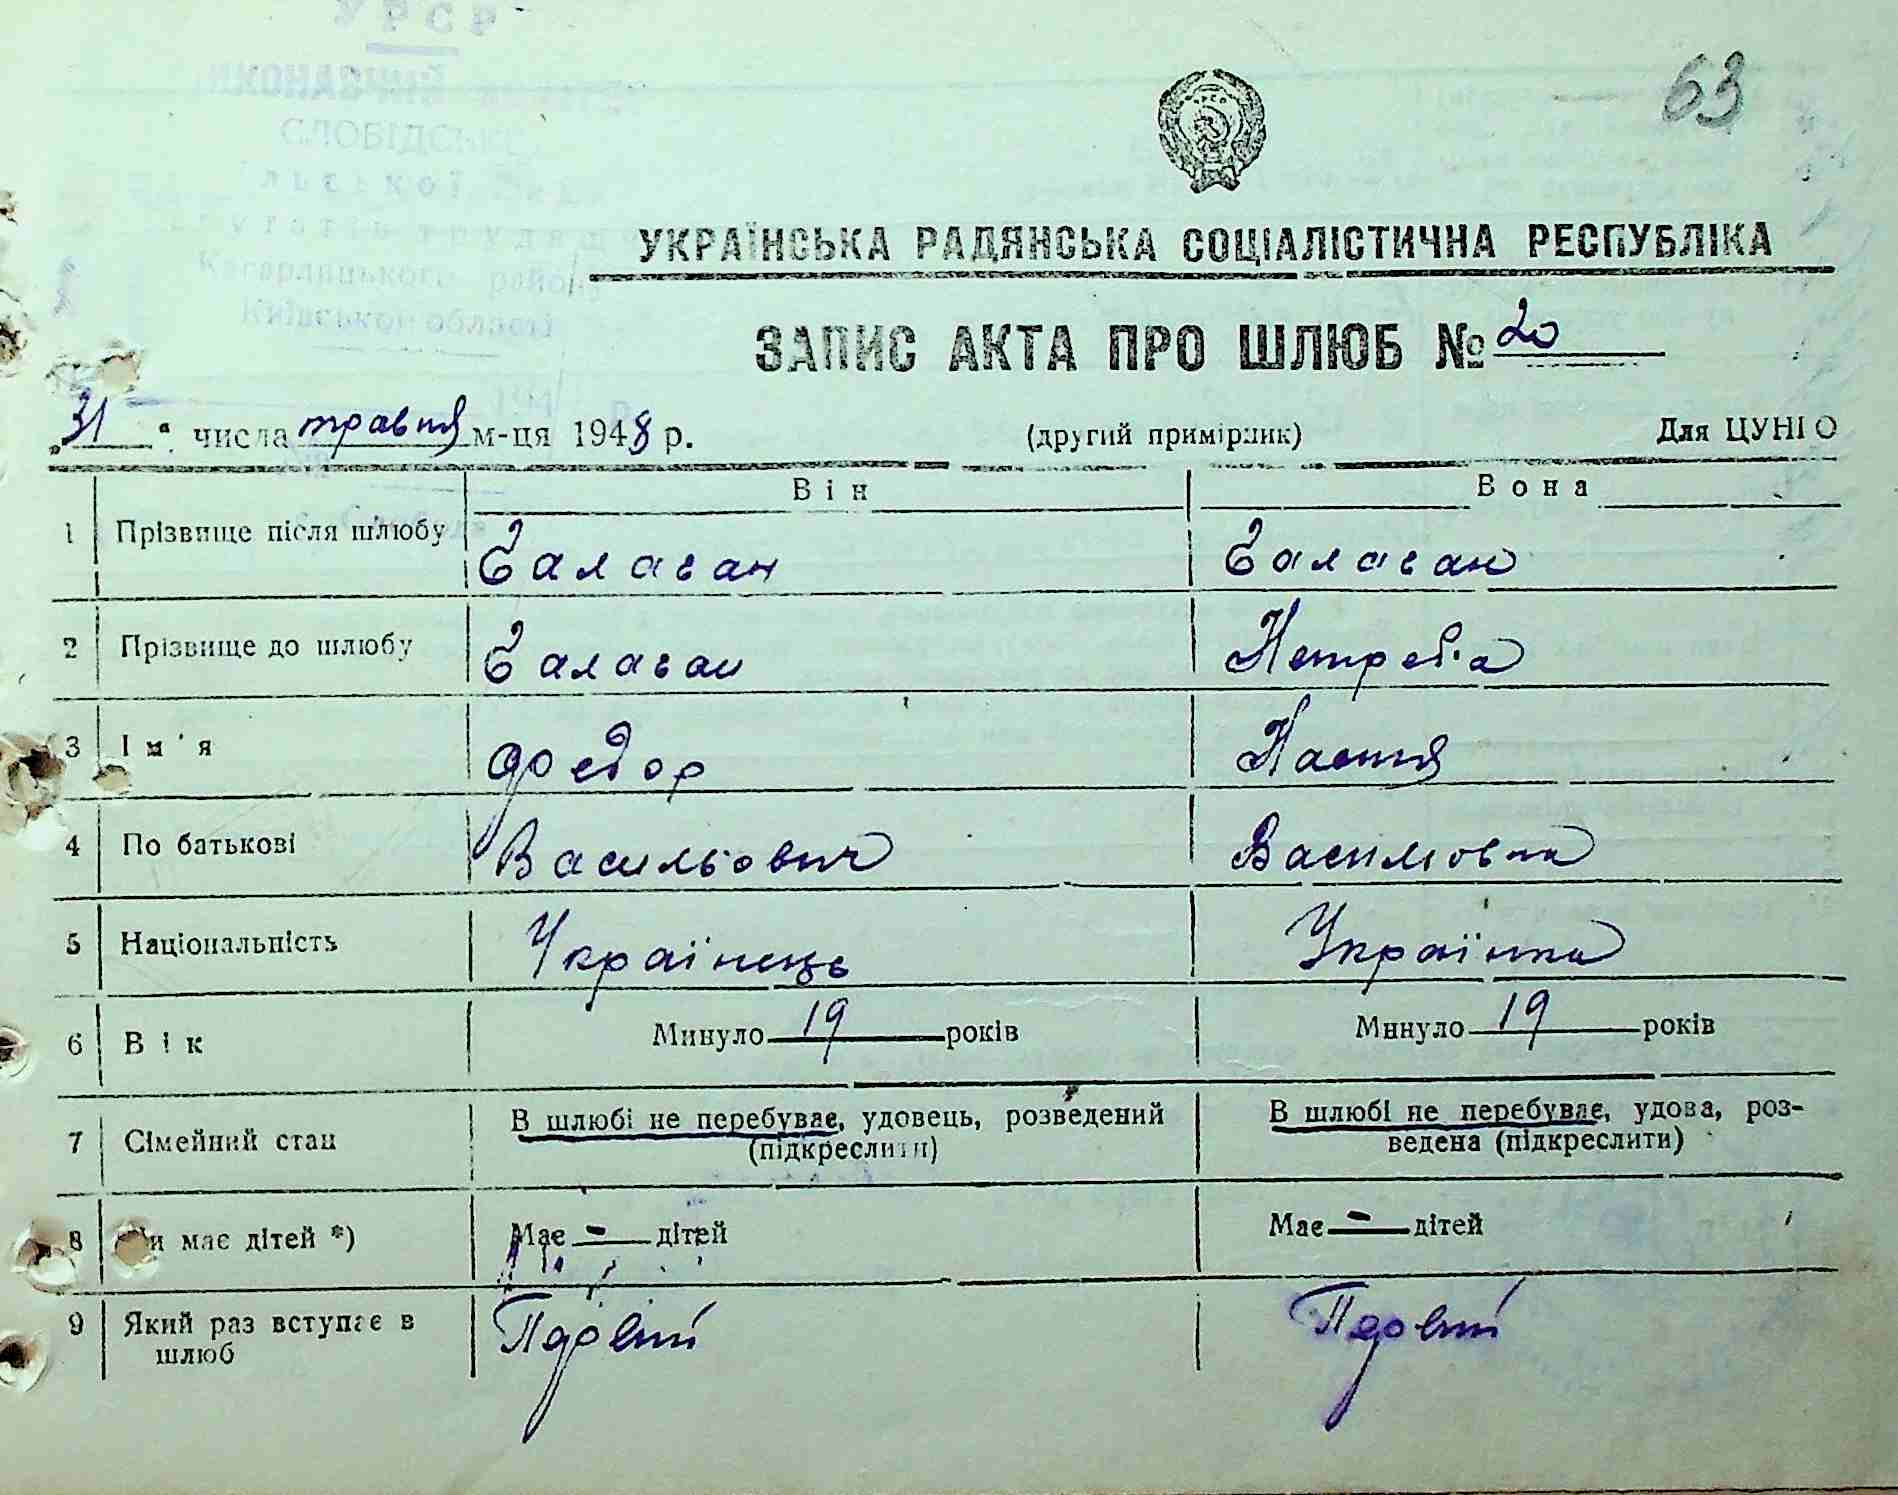 63
УКРАЇНСЬКА РАДЯНСЬКА СОЦІАЛІСТИЧНА РЕСПУБЛІКА
ЗАПИС АКТА ПРО ШЛЮБ № 20
„31“ числа травня м-ця 1948 р. (другий примірник) Для ЦУНГО
Він Вона
1 Прізвище після шлюбу Балаган Балаган
2 Прізвище до шлюбу Балаган Нетреба
3 Ім'я Федор Настя
4 По батькові Васильович Василовна
5 Національність Українець Українка
6 Вік Минуло 19 років Минуло 19 років
7 Сімейний стан В шлюбі не перебуває, удовець, розведений В шлюбі не перебуває, удова, роз-
(підкреслити) ведена (підкреслити)
8 Чи має дітей *) Має - дітей Має - дітей
9 Який раз вступає в Первий Первий
шлюб
УРСР
СЛОБІДСЬК
Кагарлицького району
Київської області